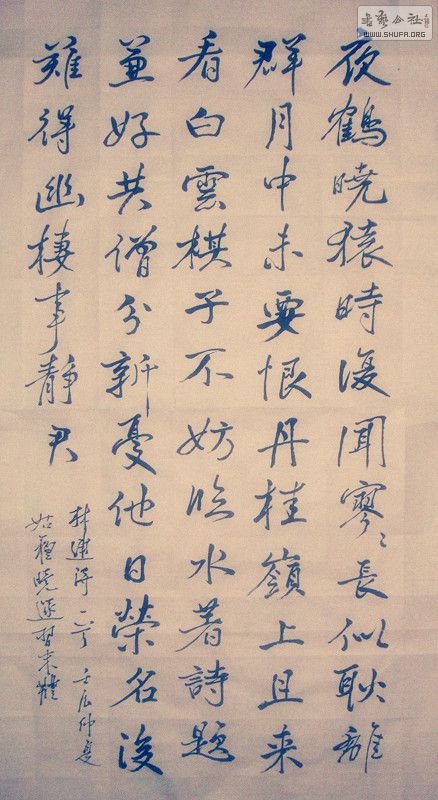 書藝公社
WWW.SHUFA.ORG
夜鶴曉猿時復聞寥〻長似耿離
群月中未要恨丹桂嶺上且来
看白雲棋子不妨臨水著詩題
兼好共僧分新憂他日榮名後
難得幽棲事静君
林逋詩 壬辰仲夏
姑蘇曉